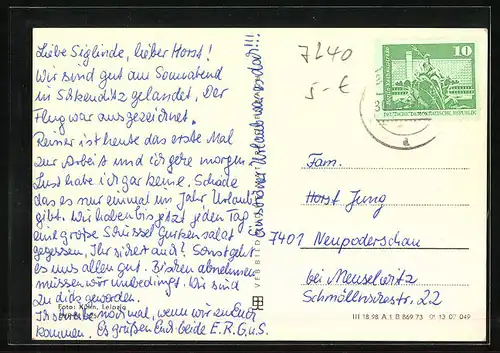 Liebe Siglinde, lieber Horst!
Wir sind gut am Sonnabend
in Schkeuditz gelandet. Der
Flug war ausgezeichnet.
Reiner ist heute das erste Mal
zur Arbeit und ich gehe morgen.
Lust habe ich gar keine. Schade
das es nur einmal im Jahr Urlaub
gibt. Wir haben bis jetzt jeden Tag
eine große Schüssel Gurkensalat
gegessen, Ihr sicher auch? Sonst geht
es uns allen gut. Bischen abnehmen
müssen wir unbedingt. Wir sind
zu dick geworden.
Ich schreibe nochmal, wenn wir zu Euch
kommen. Es grüßen Euch beide E. R. G. u. S.
Urlaub war doch!!!
Foto: Leipzig
VEB BILD
7240
5-€
10
DEUTSCHE DEMOKRATISCHE REPUBLIK
Fam.
Horst Jung
7401 Neupoderschau
bei Meuselwitz
Schmöllnerstr. 22
III 18 98 A 1 B 869 73 01 13 07 049